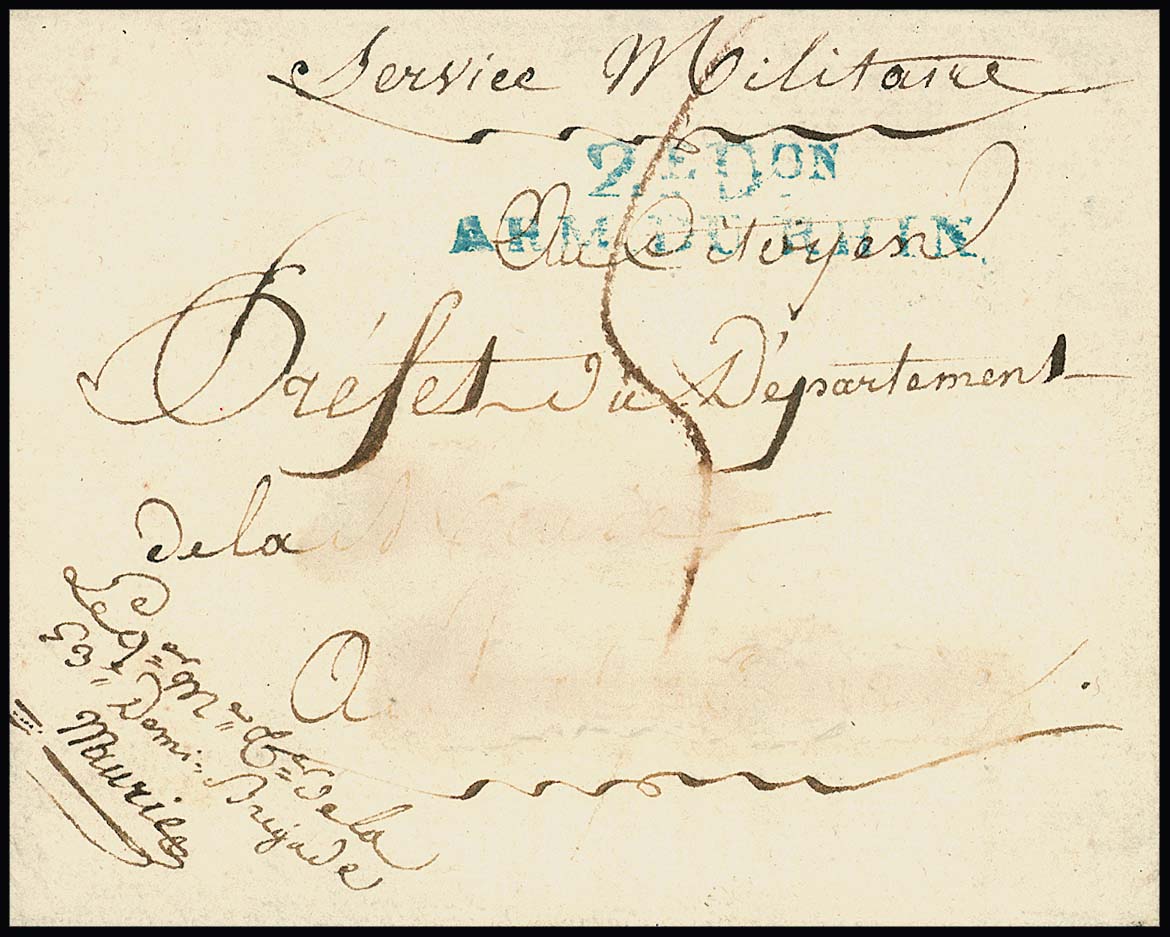 Service Militaire
2.E DON
ARM. DU RHIN.
Au Citoyen
Préfet du Département
de la
A
Le Qer Me de la
53e Demi-Brigade
Maurice